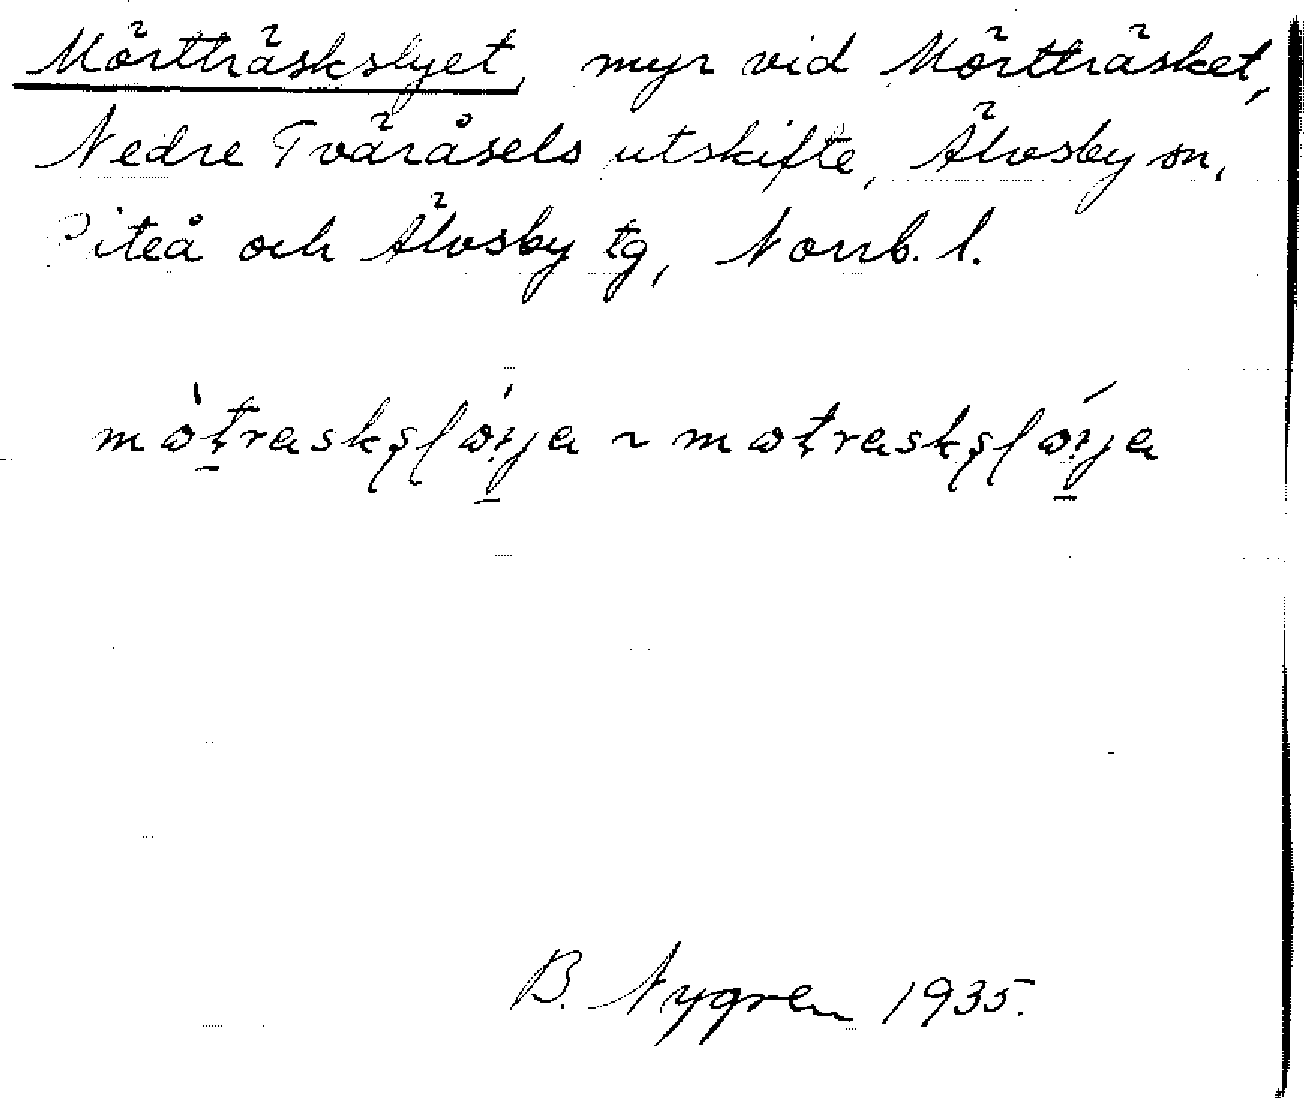 Mörtträskslyet, myr vid Mörtträsket,
Nedre Tväråsels utskifte, Älvsby sn,
Piteå och Älvsby tg, Norrb. l.
mòtraskslóija ~ motraskslóija
B. Nygren 1935.